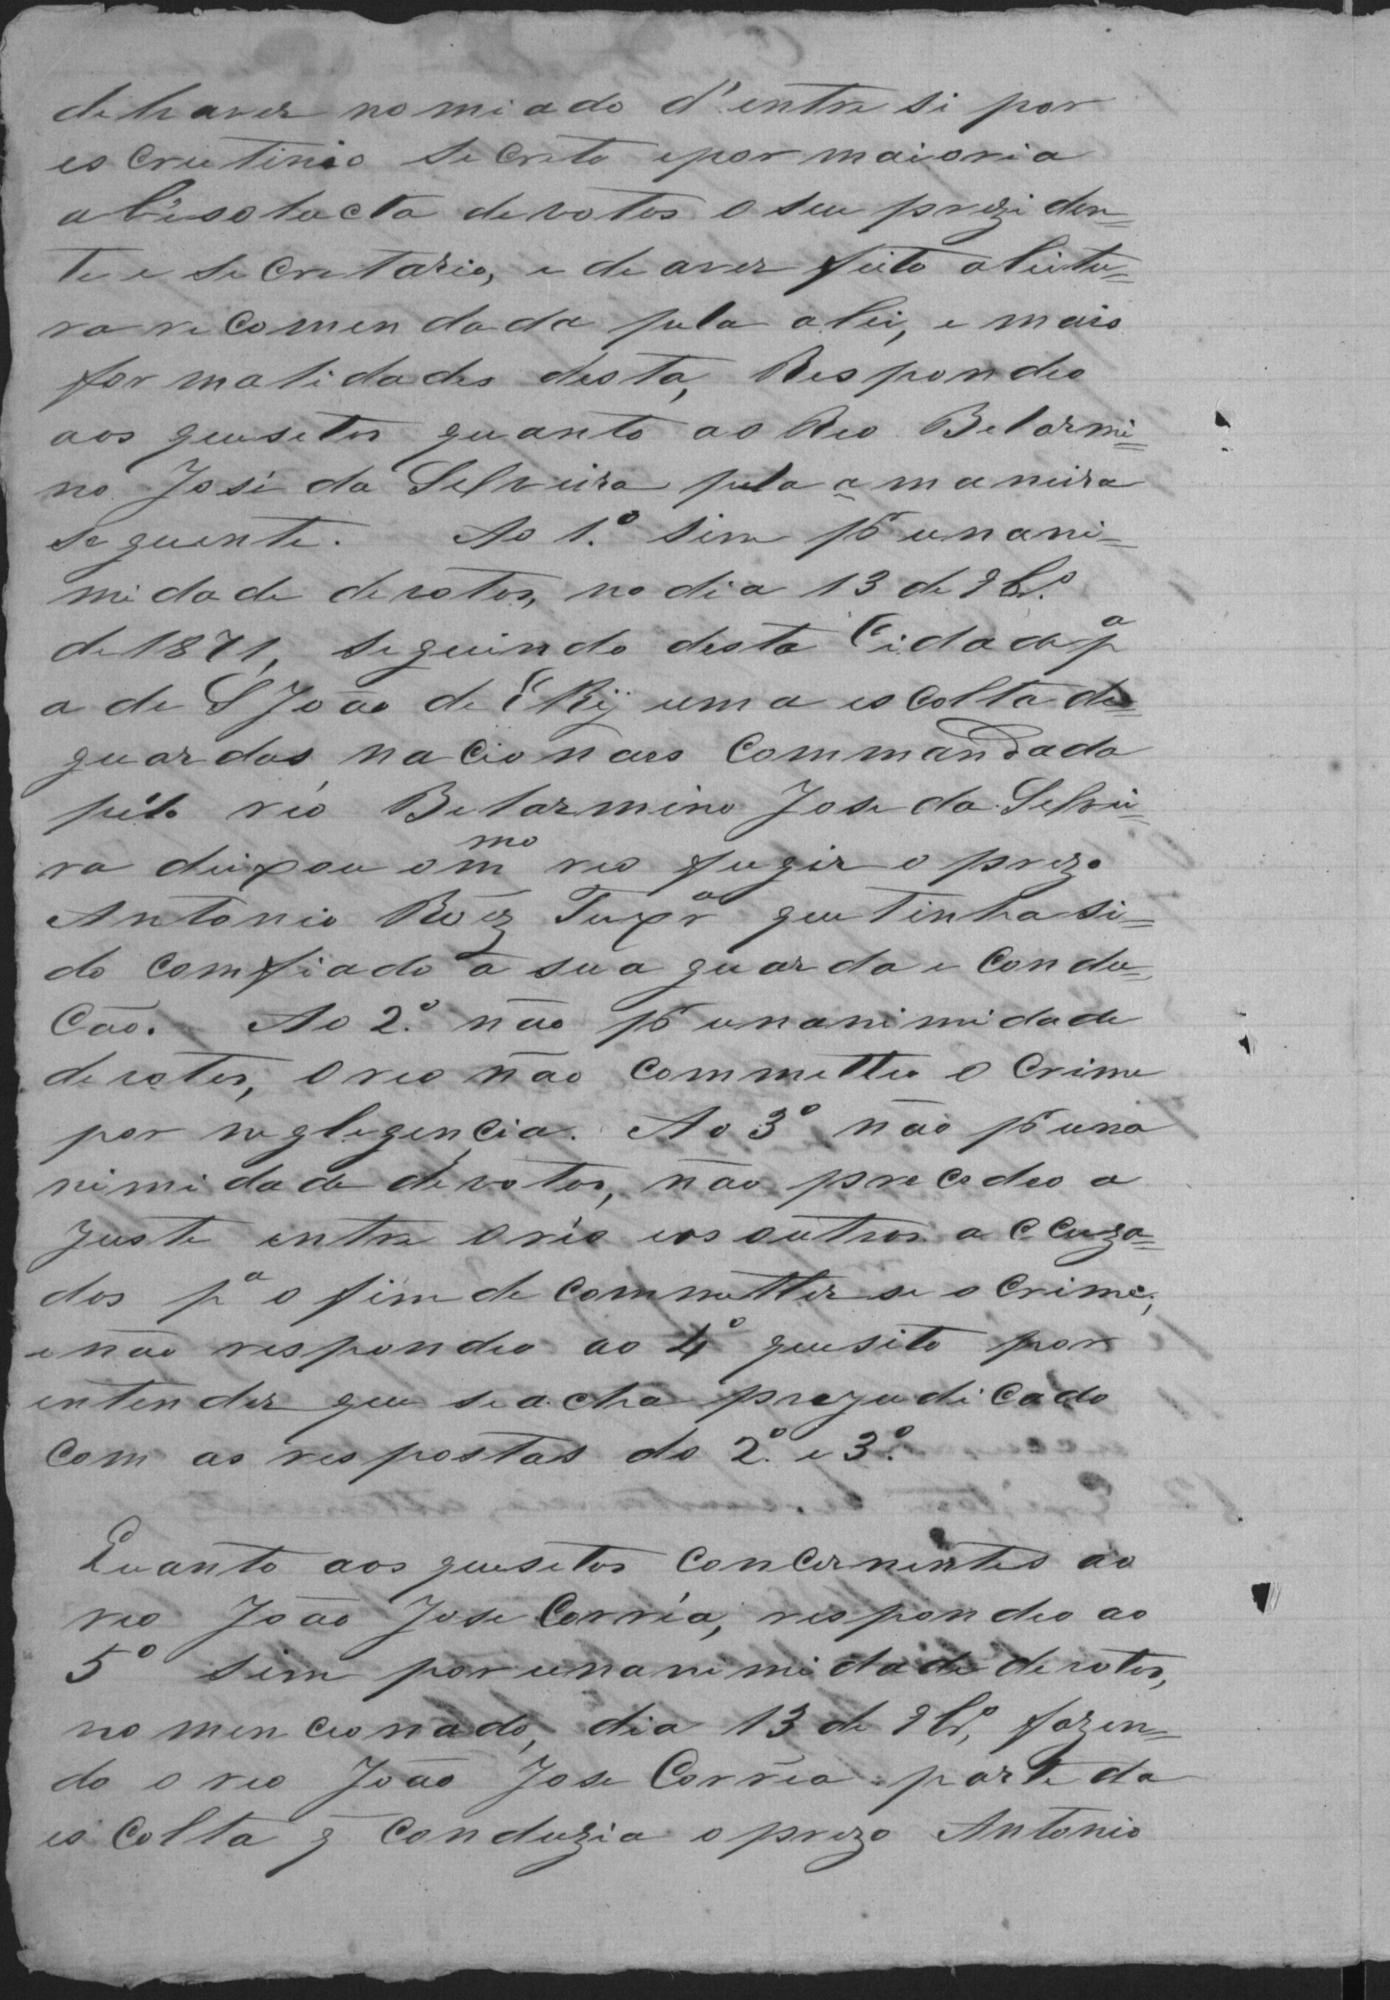 de haver nomiado d'entre si por
escrutinio secreto e por maioria
absolucta de votos o seu preziden=
te e secretario, e de aver feito a leitu=
ra recomendada pela a lei, e mais
formalidades desta, Respondeo
aos quesetos quanto ao Reo Belarmi=
no José da Selveira pela a maneira
seguente. Ao 1.º sim pr unani=
midade de votos, no dia 13 de 9b.º
de 1871, seguindo desta Cidade pª
a de S João de El Rij uma escolta de=
guardas nacionaes commandada
pelo réo Belarmino Jose da Selvei=
ra deixou o mmo reo fugir o prezo
Antonio Roiz Teixrª que tinha si=
do comfiado a sua guarda e condu=
cão. Ao 2.º não pr unanimidade
de votos, o reo não commetteo o crime
por neglegencia. Ao 3º não pr una
nimidade de votos, não precedeo a
juste entre o réo e os outros accuza=
dos pª o fim de commetter se o crime;
e não respondeo ao 4º quesito por
entender que se acha prejudicado
com as respostas do 2.º e 3.º

Quanto aos quesetos concernentes ao
reo João Jose Corrêa, respondeo ao
5º sim por unanimidade de votos,
no mencionado, dia 13 de 9br.º, fazen=
do o reo João Jose Corrêa parte da
escolta q̃ conduzia o prezo Antonio